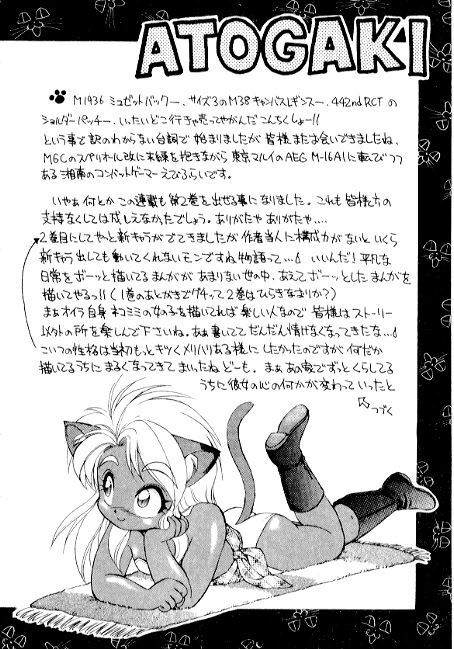 ATOGAKI
M1936 ミュゼットバックー、サイズ3のM38キャンバスレギンスー、442nd RCT の
ショルダーパッチー、いったいどこ行きゃ売ってやがんだこんちくしょー!!
という事で訳のわからない台詞で始まりましたが皆様またお会いできましたね、
MGCのスペリオール改に未練を抱きながら東京マルイのAEG M-16A1に転びつつ
ある湘南のコンバットゲーマーえびふらいです。
いやぁ何とかこの連載も第2巻を出せる事になりました。これも皆様方の
支持なくしては成しえなかたでしょう。ありがたや ありがたや....
2巻目にしてやっと新キャラがでてきましたが作者当人に構成力がないといくら
新キャラ出しても動いてくれないモンですね物語って...♂ いいんだ!平凡な
日常をボーッと描いてるまんががあまりない世の中、あえてボーッとしたまんがを
描いてやるっ!! (1巻のあとがきでグチって2巻はひらきなおりか?)
まぁオイラ自身ネコミミの女の子を描いてれば楽しい人なので皆様はストーリー
以外の所を楽しんで下さいね。あぁ書いててだんだん情けなくなってきたな...♂
こいつの性格は当初もっとキツくメリハリある様にしたかったのですが何だか
描いてるうちにまるくなってきてまいったねどーも。まぁあの家でずっとくらしてる
うちに彼女の心の何かが変わっていったと
つづく